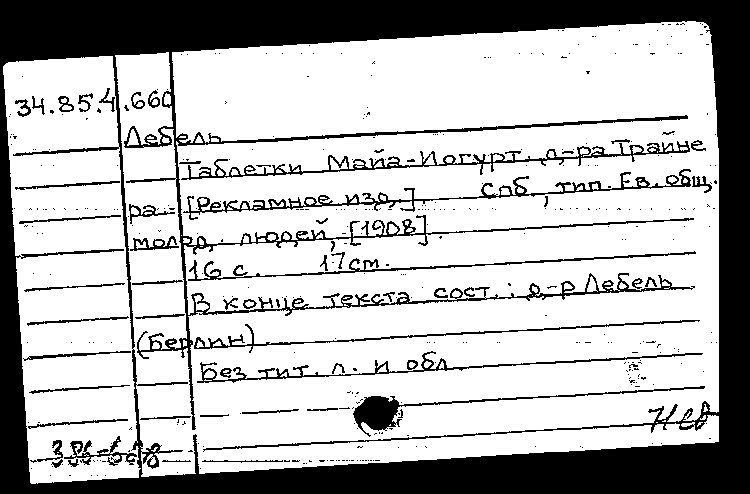 34.85.4.660
Лебель
Таблетки Майа-Иогурт д-ра Трайне
ра.- [Рекламное изд.]. Спб, тип. Ев. общ.
молод. людей, [1908].
16 с. 17 см.
В конце текста сост.: д-р Лебель
(Берлин).
Без тит. л. и обл.